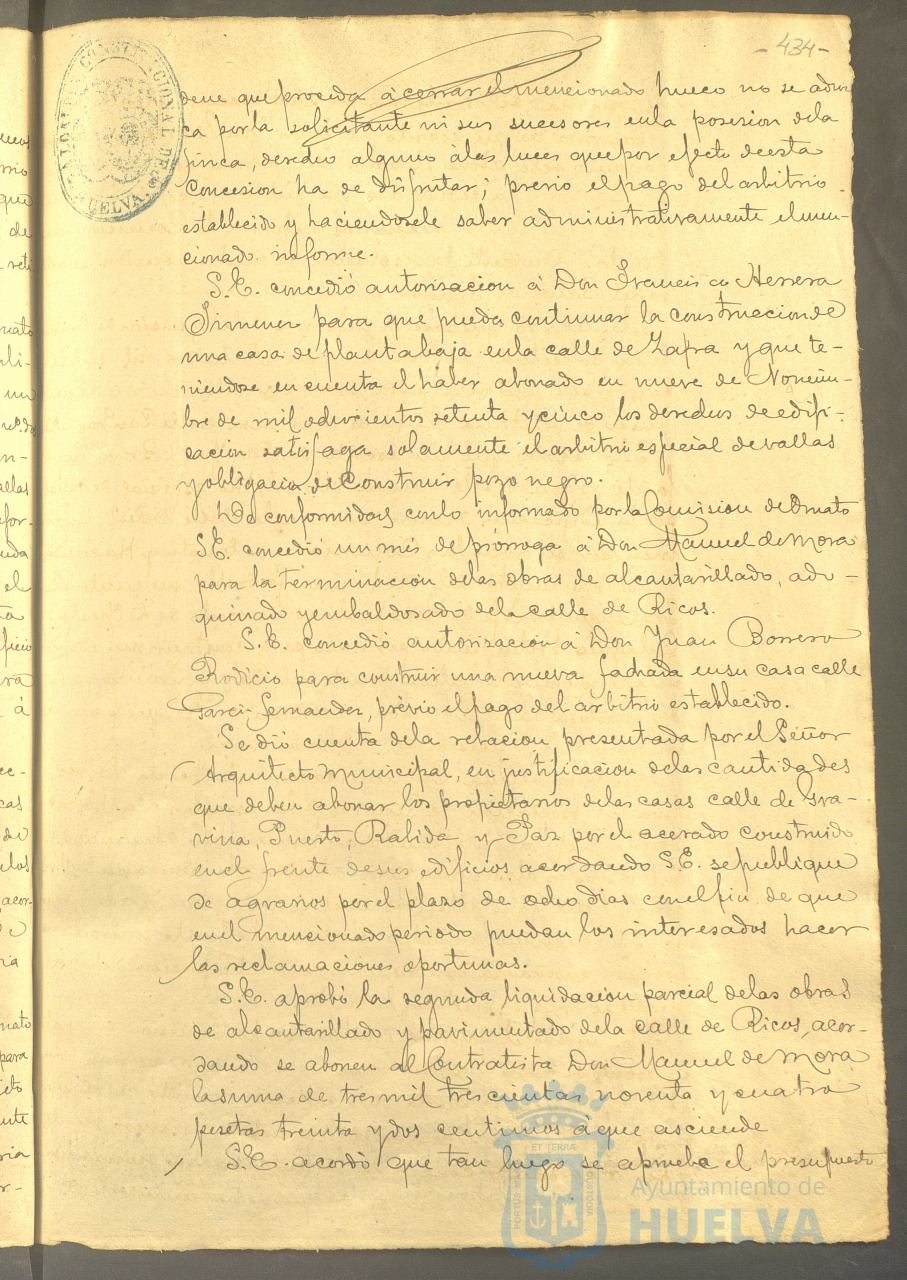 -434-
ALCALDIA CONSTITUCIONAL DE HUELVA.
dene que proceda á cerrar el mencionado hueco no se aduz-
ca por la solicitante ni sus sucesores en la posesion de la
finca, derecho alguno á las luces que por efecto de esta
Concesion ha de disfrutar; previo el pago del arbitrio
establecido y haciendosele saber administrativamente el men-
cionado informe.
S.E. concedió autorizacion á Don Francisco Herrera
Jimenez para que pueda continuar la construccion de
una casa de planta baja en la calle de Zafra y que te-
niendose en cuenta el haber abonado en nueve de Noviem-
bre de mil ochocientos setenta y cinco los derechos de edifi-
cacion satisfaga solamente el arbitrio especial de vallas
y obligacion de Construir pozo negro.
De conformidad con lo informado por la Comision de Ornato
S.E. concedió un mes de prórroga á Don Manuel de Mora
para la terminacion de las obras de alcantarillado, ado-
quinado y embaldosado de la calle de Ricos.
S.E. concedió autorizacion á Don Juan Borrero
Rodicio para construir una nueva fachada en su casa calle
Garci-Fernandez, prévio el pago del arbitrio establecido.
Se dió cuenta de la relacion presentada por el Señor
Arquitecto Municipal, en justificacion de las cantidades
que deben abonar los propietarios de las casas calle de Gra-
vina, Puerto, Rabida y Paz por el acerado construido
en el frente de sus edificios acordando S.E. se publique
de agravios por el plazo de ocho dias con el fin de que
en el mencionado periodo puedan los interesados hacer
las reclamaciones oportunas.
S.E. aprobó la segunda liquidacion parcial de las obras
de alcantarillado y pavimentado de la calle de Ricos, acor-
dando se abonen al Contratista Don Manuel de Mora
la suma de tres mil trescientas noventa y cuatro
pesetas treinta y dos centimos á que asciende
S.E. acordó que tan luego se apruebe el presupuesto
ET TERRÆ
PORTUS MARIS
CUSTODIA
Ayuntamiento de
HUELVA